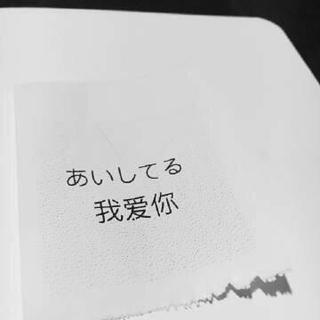 あいしてる
我爱你